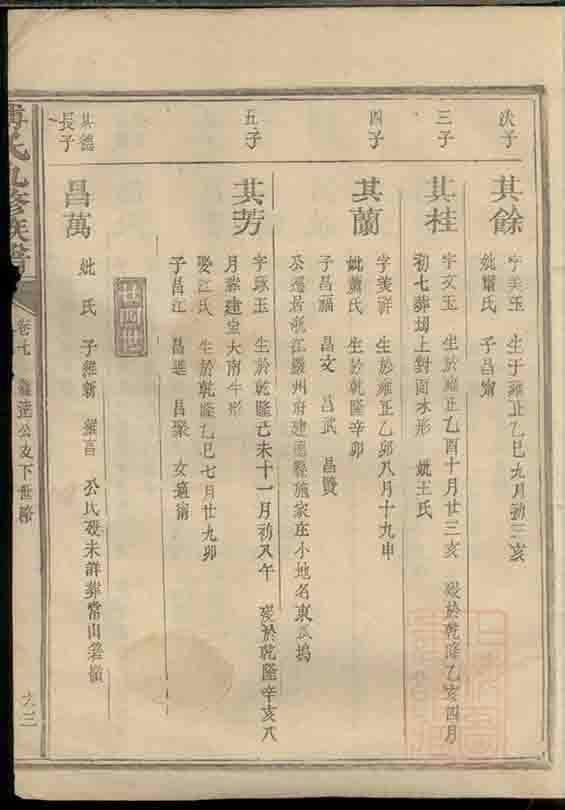 次子
其餘
字美玉 生于雍正乙巳九月初三亥
妣蕭氏 子昌甯
三子
其桂
字文玉 生於雍正乙酉十月廿三亥 歿於乾隆乙亥四月
初七葬坳上對面水形 妣王氏
四子
其蘭
字美祥 生於雍正乙卯八月十九申
妣蕭氏 生於乾隆辛卯
子昌福 昌文 昌武 昌賢
公遷居浙江嚴州府建德縣施家庄小地名東瓜塢
五子
其芳
字琢玉 生於乾隆己未十一月初八午 歿於乾隆辛亥八
月葬建堂大南牛形
娶江氏 生於乾隆乙巳七月廿九卯
子昌江 昌進 昌聚 女適甯
廿四世
其德
長子
昌萬
妣 氏 子維新 維富 公氏歿未詳葬常山磐嶺
氏九修族譜
卷七
達公支下世